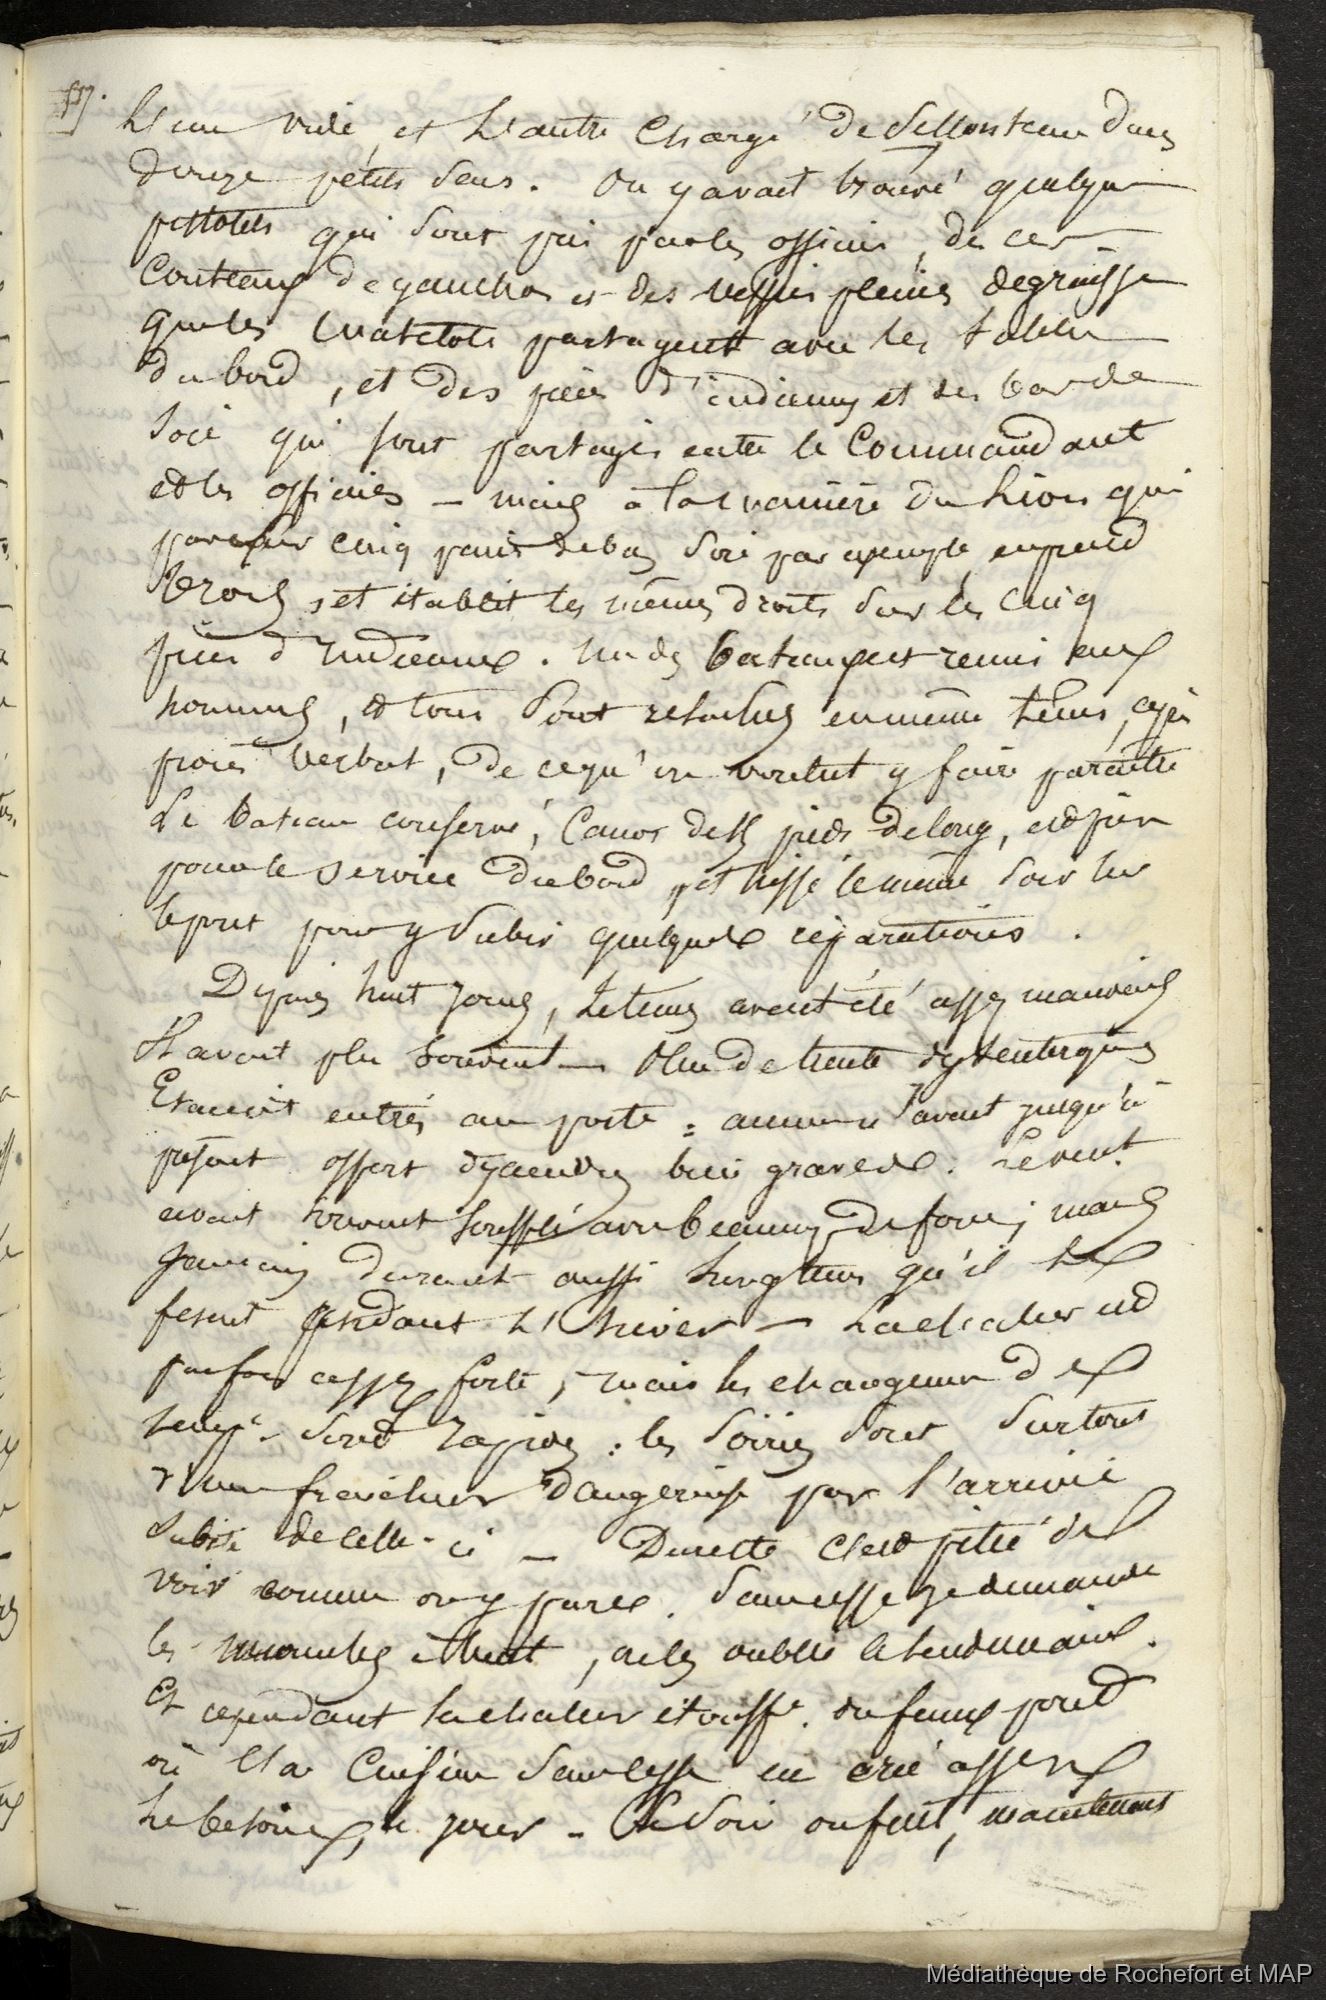 L'un vide, et L'autre chargé de sel contenu dans
douze petits sacs. On y avait trouvé quelques
pistolets qui sont pris par les officiers, de ces
Couteaux de gauchos et des vessies pleines de graisse
que les matelots partagent avec les tables
du bord, et des pièces d'indiennes et des bas de
soie qui sont partagés entre le Commandant
et les officiers — mais à la manière du Lion qui
sur cinq paires de bas soie par exemple, en prend
trois, et établit les mêmes droits sur les cinq
pièces d'Indiennes. Un des bateaux est remis aux
hommes, et tous sont relachés en même tems, après
procès verbal, de ce qu'on voulut y faire paraître
Le bateau conservé, Canot de pieds de long, est pris
pour le service du bord, et hissé le même soir sur
le pont pour y subir quelques réparations.
Depuis huit jours, Le tems avait été assez mauvais
Il avait plu souvent — Plus de trente dyssenteriques
Etaient entrés au poste = aucun n'avait jusqu'à
présent offert d'accidens bien graves. Le vent
avait souvent soufflé avec beaucoup de force; mais
jamais durant aussi longtems qu'il le
fesait pendant L'hiver — La chaleur est
parfois assez forte, mais les changemens de
temps sont rapides: les soirées sont surtout
d'une fraicheur dangereuse par l'arrivée
subite de celle-ci — Du reste c'est pitié de
voir comme on y pare. Sans cesse je demande
les manches à vent, on les oublie le lendemain.
Et cependant la chaleur étouffe. du faux pont
où La Cuisine sans cesse en crie assez
Le besoin, le jour. — Le soir on fait, maintenant
Médiathèque de Rochefort et MAP